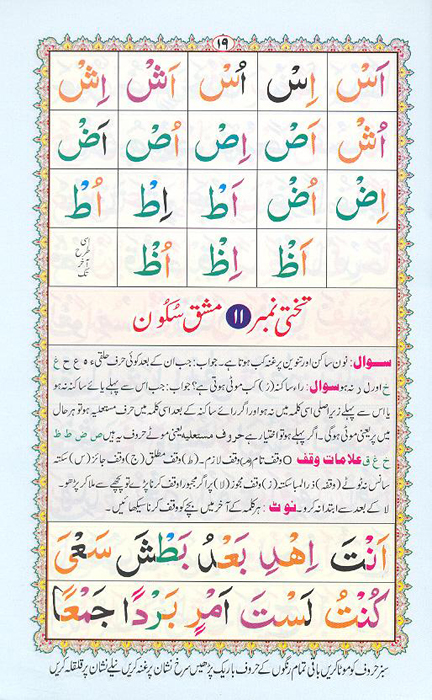 ١٩
اَسْ اِسْ اُسْ اَشْ اِشْ
اُشْ اَصْ اِصْ اُصْ اَضْ
اِضْ اُضْ اَطْ اِطْ اُطْ
اَظْ اِظْ اُظْ اسی طرح آخر تک
تختی نمبر ۱۱ مشق سکون
سوال: نون ساکن اور تنوین پر غنہ کب ہوتا ہے۔ جواب: جب ان کے بعد کوئی حرف حلقی ء ہ ع ح غ
خ اور ل ر نہ ہو سوال: راء ساکنہ (رْ) کب موٹی ہوتی ہے؟ جواب: جب اس سے پہلے یائے ساکنہ نہ ہو
یا اس سے پہلے زیر اصلی اسی کلمہ میں نہ ہو اور اگر رائے ساکنہ کے بعد اسی کلمہ میں حرف مستعلیہ ہو تو ہر حال
میں پُر یعنی موٹی ہوگی۔ اگر پہلے ہو تو اختیار ہے حروف مستعلیہ یعنی موٹے حروف یہ ہیں ص ض ط ظ
خ غ ق علامات وقف O وقف تام (م) وقف لازم۔ (ط) وقف مطلق (ج) وقف جائز (س) سکتہ
سانس نہ ٹوٹے (وقفہ) ذرا لمبا سکتہ (ز) وقف مجوز (لا) پر اگر مجبوراً وقف کرنا پڑے تو پیچھے سے ملا کر پڑھو۔
لا کے بعد سے ابتدا نہ کرو۔ نوٹ: ہر کلمہ کے آخر میں بچے کو وقف کرنا سکھائیں۔
اَنْتَ اِهْدِ بَعْدُ بَطْشَ سَعْىَ
كُنْتُ لَسْتَ اَمْرٍ بَرْدًا جَمْعًا
سبز حروف کو موٹا کریں باقی تمام رنگوں کے حروف باریک پڑھیں سرخ نشان پر غنہ کریں نیلے نشان پر قلقلہ کریں